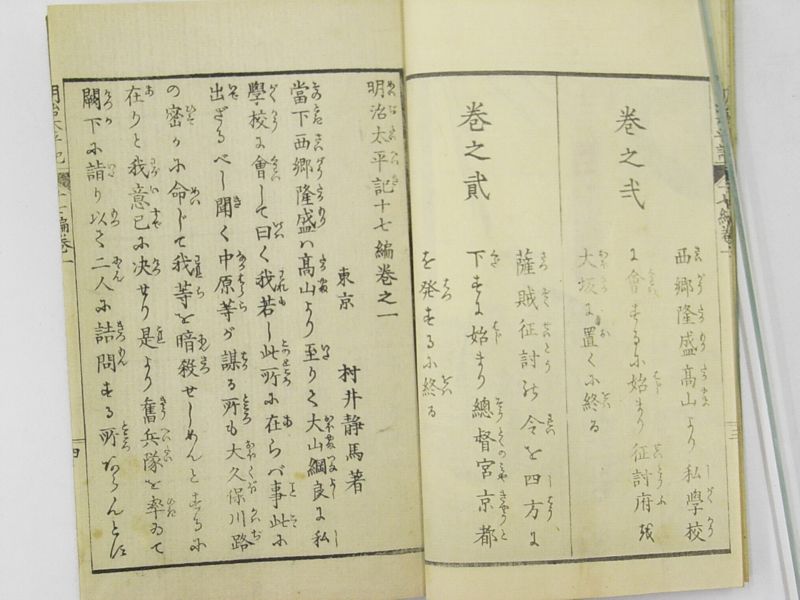 巻之弌
西郷隆盛髙山より私學校
に會するに始まり征討府を
大坂に置くに終る
巻之貳
薩賊征討の令を四方に
下すに始まり總督宮京都
を発するに終る
明治太平記十七編巻之一
東京 村井静馬著
當下西郷隆盛ハ髙山より至りて大山綱良に私
學校に會して曰く我若し此所に在らバ事此に
出ざるべし聞く中原等が謀る所も大久保川路
の密かに命じて我等を暗殺せしめんとするに
在りと我意已に决せり是より奮兵隊を率ゐて
闕下に詣り以て二人に詰問する所あらんとに
明治太平記 十七編巻一 四